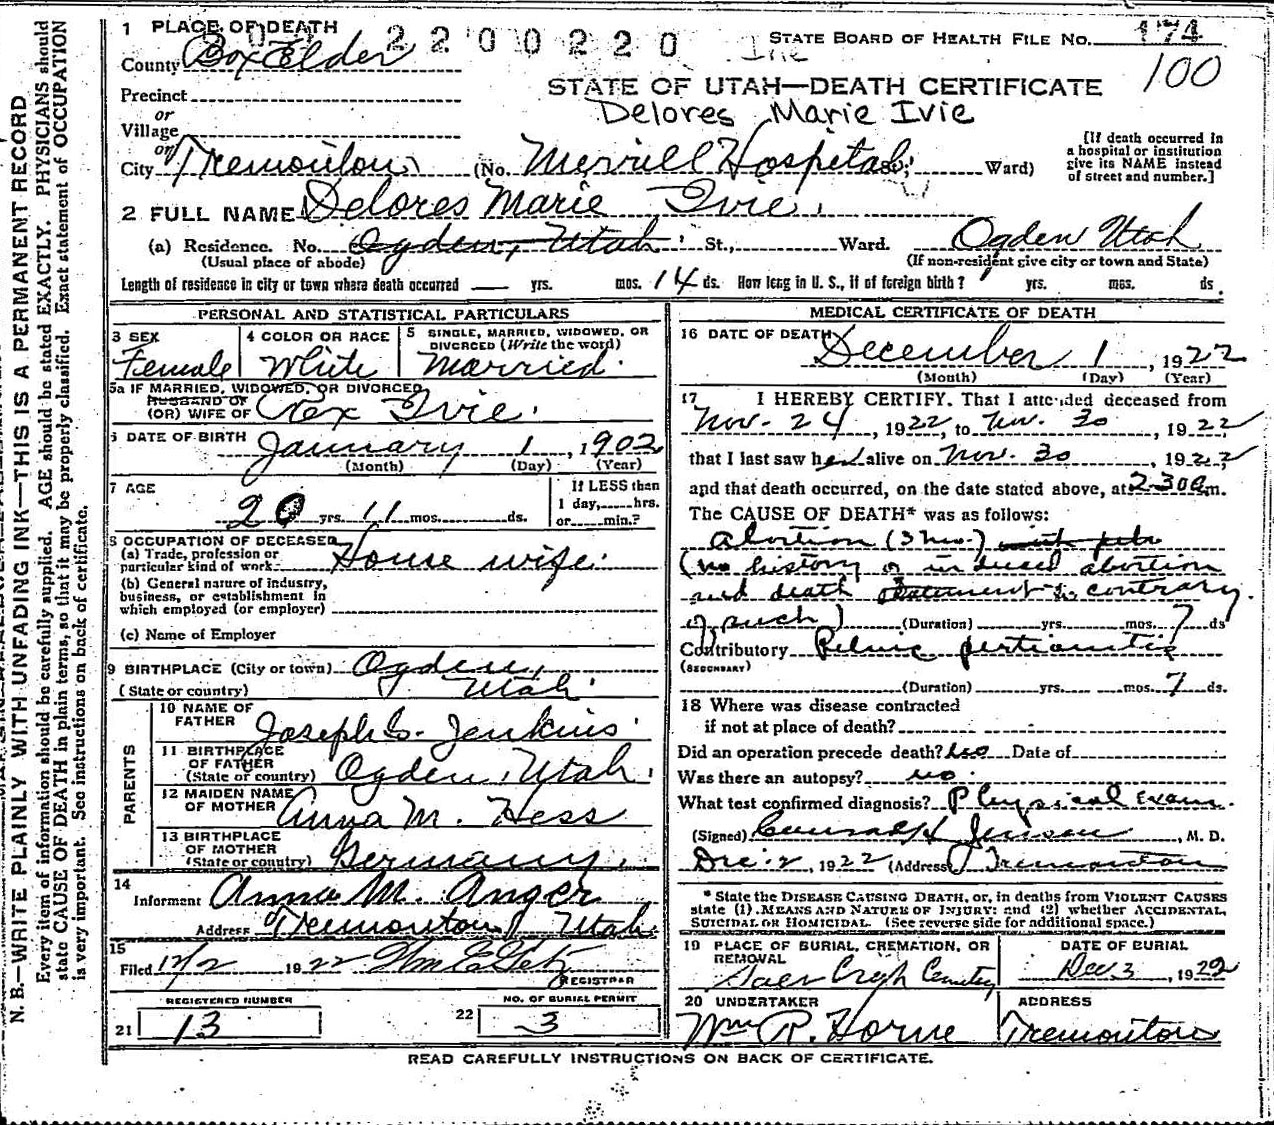 1 PLACE OF DEATH
2200220
STATE BOARD OF HEALTH FILE NO. 174
County Box Elder
Ivie
100
STATE OF UTAH—DEATH CERTIFICATE
Precinct
Delores Marie Ivie
or
Village
or
City Tremonton (No. Merrill Hospital St; Ward)
[If death occurred in
a hospital or institution
give its NAME instead
of street and number.]
2 FULL NAME Delores Marie Ivie.
(a) Residence. No. Ogden, Utah St., Ward. Ogden Utah
(Usual place of abode) (If non-resident give city or town and State)
Length of residence in city or town where death occurred — yrs. mos. 14 ds. How long in U. S., if of foreign birth? yrs. mos. ds.
PERSONAL AND STATISTICAL PARTICULARS
3 SEX 4 COLOR OR RACE 5 SINGLE, MARRIED, WIDOWED, OR
DIVORCED (Write the word)
Female White Married.
5a IF MARRIED, WIDOWED, OR DIVORCED
HUSBAND OF
(OR) WIFE OF Rex Ivie.
6 DATE OF BIRTH January 1, 1902
(Month) (Day) (Year)
7 AGE If LESS than
1 day, hrs.
20 yrs. 11 mos. ds. or min.?
8 OCCUPATION OF DECEASED
(a) Trade, profession or
particular kind of work House wife.
(b) General nature of industry,
business, or establishment in
which employed (or employer)
(c) Name of Employer
9 BIRTHPLACE (City or town) Ogden,
(State or country) Utah.
PARENTS
10 NAME OF
FATHER Joseph G. Jenkins
11 BIRTHPLACE
OF FATHER
(State or country) Ogden, Utah.
12 MAIDEN NAME
OF MOTHER Anna M. Hess
13 BIRTHPLACE
OF MOTHER
(State or country) Germany.
14
Informent Anna M. Anger
Address Tremonton Utah.
15
Filed 12/2 1922 Wm E Getz
REGISTRAR
REGISTERED NUMBER NO. OF BURIAL PERMIT
21 13 22 3
MEDICAL CERTIFICATE OF DEATH
16 DATE OF DEATH December 1, 1922
(Month) (Day) (Year)
17 I HEREBY CERTIFY. That I attended deceased from
Nov. 24, 1922, to Nov. 30, 1922
that I last saw her alive on Nov. 30, 1922,
and that death occurred, on the date stated above, at 2:30 a m.
The CAUSE OF DEATH* was as follows:
Abortion (3 mo.)
(no history of induced abortion
and death statement to contrary
of such) (Duration) yrs. mos. 7 ds
Contributory Pelvic peritonitis
(SECONDARY)
(Duration) yrs. mos. 7 ds.
18 Where was disease contracted
if not at place of death?
Did an operation precede death? No Date of
Was there an autopsy? no.
What test confirmed diagnosis? Physical Exam.
(Signed) Conrad H Jenson, M. D.
Dec. 2, 1922 (Address) Tremonton
* State the DISEASE CAUSING DEATH, or, in deaths from VIOLENT CAUSES
state (1) MEANS AND NATURE OF INJURY: and (2) whether ACCIDENTAL,
SUICIDAL OR HOMICIDAL. (See reverse side for additional space.)
19 PLACE OF BURIAL, CREMATION, OR
REMOVAL
Cemetery
DATE OF BURIAL
Dec 3, 1922
20 UNDERTAKER ADDRESS
Wm R. Horne Tremonton
READ CAREFULLY INSTRUCTIONS ON BACK OF CERTIFICATE.
N. B.—WRITE PLAINLY WITH UNFADING INK—THIS IS A PERMANENT RECORD
Every item of information should be carefully supplied. AGE should be stated EXACTLY. PHYSICIANS should
state CAUSE OF DEATH in plain terms, so that it may be properly classified. Exact statement of OCCUPATION
is very important. See instructions on back of certificate.